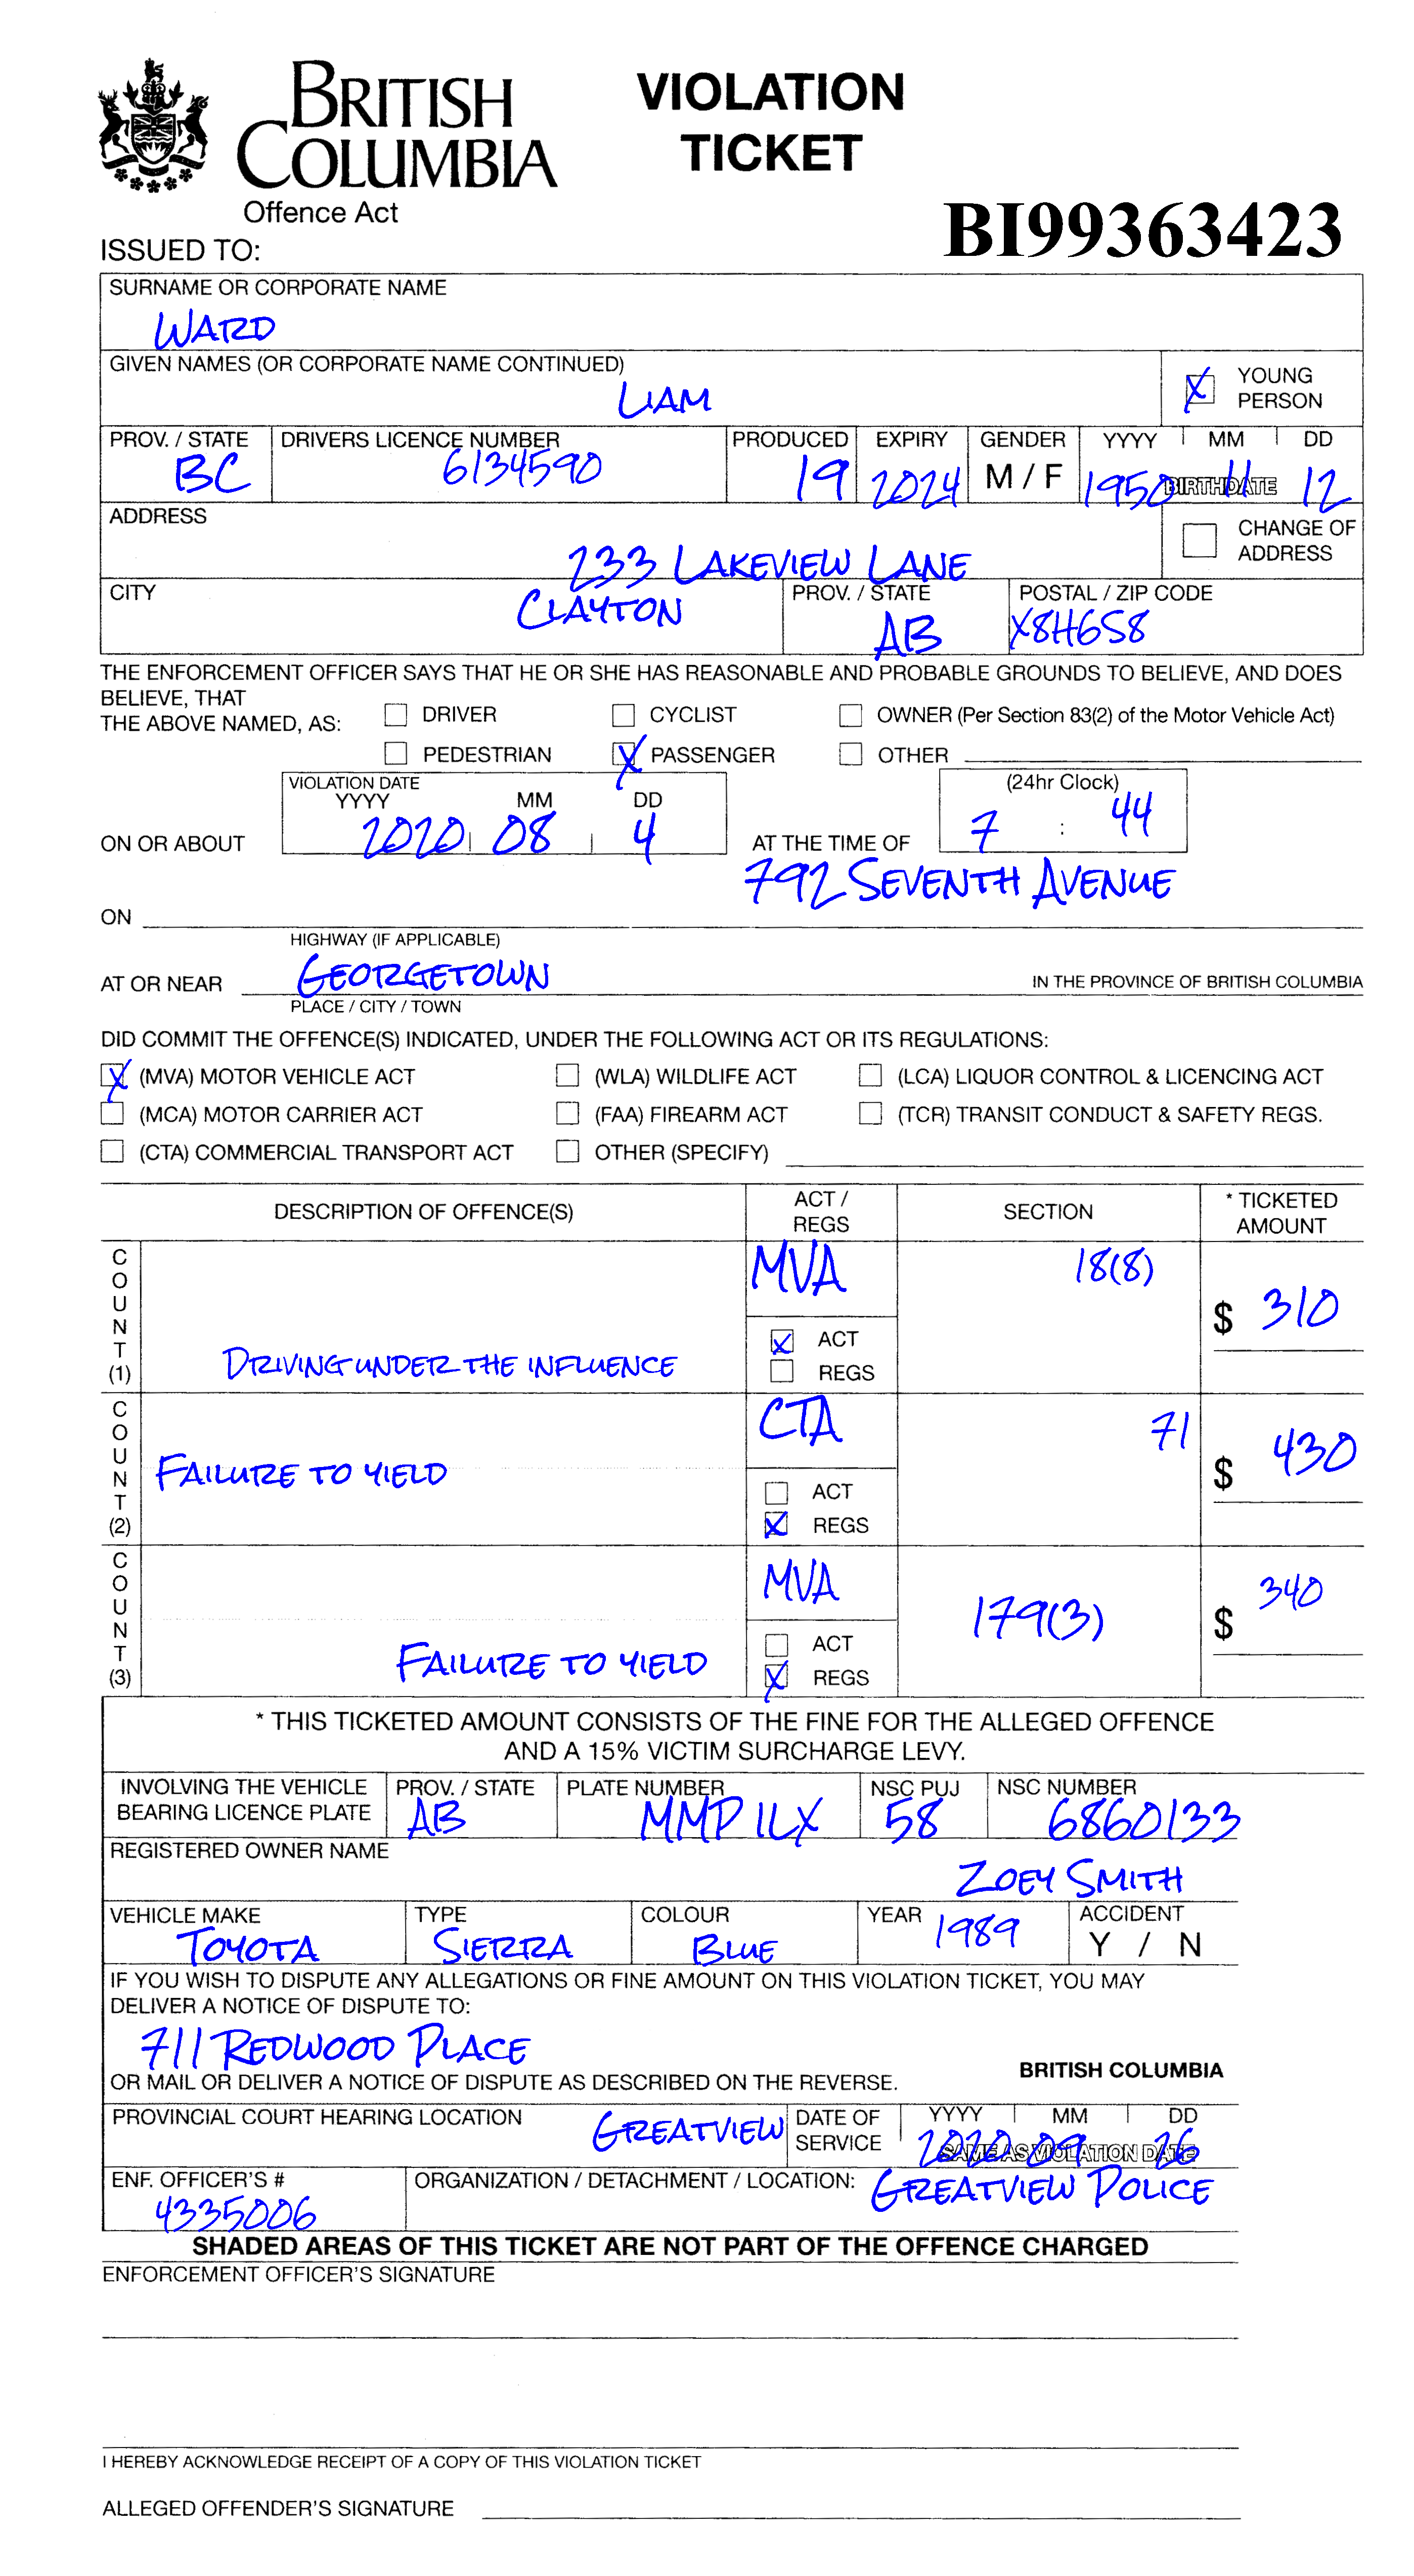 BRITISH
COLUMBIA
Offence Act
VIOLATION
TICKET
BI99363423
ISSUED TO:
SURNAME OR CORPORATE NAME
WARD
GIVEN NAMES (OR CORPORATE NAME CONTINUED)
LIAM
YOUNG
PERSON
PROV. / STATE DRIVERS LICENCE NUMBER PRODUCED EXPIRY GENDER YYYY MM DD
BC 6134590 19 2024 M / F 1950 11 12
BIRTHDATE
ADDRESS
233 LAKEVIEW LANE
CHANGE OF
ADDRESS
CITY PROV. / STATE POSTAL / ZIP CODE
CLAYTON AB X8H6S8
THE ENFORCEMENT OFFICER SAYS THAT HE OR SHE HAS REASONABLE AND PROBABLE GROUNDS TO BELIEVE, AND DOES
BELIEVE, THAT
THE ABOVE NAMED, AS: DRIVER CYCLIST OWNER (Per Section 83(2) of the Motor Vehicle Act)
PEDESTRIAN X PASSENGER OTHER
VIOLATION DATE (24hr Clock)
YYYY MM DD
ON OR ABOUT 2020 08 4 AT THE TIME OF 7 : 44
ON 792 SEVENTH AVENUE
HIGHWAY (IF APPLICABLE)
AT OR NEAR GEORGETOWN IN THE PROVINCE OF BRITISH COLUMBIA
PLACE / CITY / TOWN
DID COMMIT THE OFFENCE(S) INDICATED, UNDER THE FOLLOWING ACT OR ITS REGULATIONS:
X (MVA) MOTOR VEHICLE ACT (WLA) WILDLIFE ACT (LCA) LIQUOR CONTROL & LICENCING ACT
(MCA) MOTOR CARRIER ACT (FAA) FIREARM ACT (TCR) TRANSIT CONDUCT & SAFETY REGS.
(CTA) COMMERCIAL TRANSPORT ACT OTHER (SPECIFY)
DESCRIPTION OF OFFENCE(S) ACT / REGS SECTION * TICKETED AMOUNT
COUNT (1) DRIVING UNDER THE INFLUENCE MVA X ACT REGS 18(8) $ 310
COUNT (2) FAILURE TO YIELD CTA ACT X REGS 71 $ 430
COUNT (3) FAILURE TO YIELD MVA ACT X REGS 179(3) $ 340
* THIS TICKETED AMOUNT CONSISTS OF THE FINE FOR THE ALLEGED OFFENCE
AND A 15% VICTIM SURCHARGE LEVY.
INVOLVING THE VEHICLE PROV. / STATE PLATE NUMBER NSC PUJ NSC NUMBER
BEARING LICENCE PLATE AB MMP 1LX 58 6860133
REGISTERED OWNER NAME
ZOEY SMITH
VEHICLE MAKE TYPE COLOUR YEAR ACCIDENT
TOYOTA SIERRA BLUE 1989 Y / N
IF YOU WISH TO DISPUTE ANY ALLEGATIONS OR FINE AMOUNT ON THIS VIOLATION TICKET, YOU MAY
DELIVER A NOTICE OF DISPUTE TO:
711 REDWOOD PLACE
BRITISH COLUMBIA
OR MAIL OR DELIVER A NOTICE OF DISPUTE AS DESCRIBED ON THE REVERSE.
PROVINCIAL COURT HEARING LOCATION GREATVIEW DATE OF SERVICE YYYY MM DD
2020 09 26
SAME AS VIOLATION DATE
ENF. OFFICER'S # ORGANIZATION / DETACHMENT / LOCATION: GREATVIEW POLICE
4335006
SHADED AREAS OF THIS TICKET ARE NOT PART OF THE OFFENCE CHARGED
ENFORCEMENT OFFICER'S SIGNATURE
I HEREBY ACKNOWLEDGE RECEIPT OF A COPY OF THIS VIOLATION TICKET
ALLEGED OFFENDER'S SIGNATURE